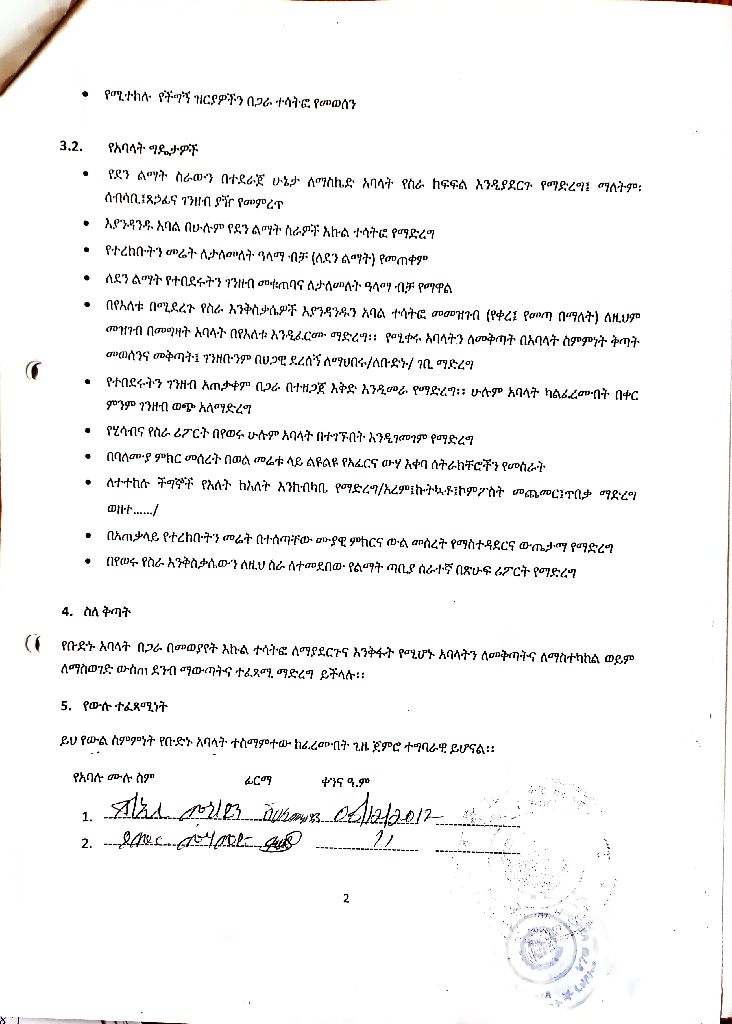 • የሚተከሉ የችግኝ ዝርያዎችን በጋራ ተሳትፎ የመወሰን
3.2. የአባላት ግዴታዎች
• የደን ልማት ስራውን በተደራጀ ሁኔታ ለማስኬድ አባላት የስራ ክፍፍል እንዲያደርጉ የማድረግ፤ ማለትም፡
ሰብሳቢ፤ጸኃፊና ገንዘብ ያዥ የመምረጥ
• እያንዳንዱ አባል በሁሉም የደን ልማት ስራዎች እኩል ተሳትፎ የማድረግ
• የተረከቡትን መሬት ለታለመለት ዓላማ ብቻ (ለደን ልማት) የመጠቀም
• ለደን ልማት የተበደሩትን ገንዘብ መቁጠባና ለታለመለት ዓላማ ብቻ የማዋል
• በየእለቱ በሚደረጉ የስራ እንቅስቃሴዎች እያንዳንዱን አባል ተሳትፎ መመዝገብ (የቀረ፤ የመጣ በማለት) ለዚህም
መዝገብ በመግዛት አባላት በየእለቱ እንዲፈርሙ ማድረግ፡፡ የሚቀሩ አባላትን ለመቅጣት በአባላት ስምምነት ቅጣት
መወሰንና መቅጣት፤ ገንዘቡንም በህጋዊ ደረሰኝ ለማህበሩ/ለቡድኑ/ ገቢ ማድረግ
• የተበደሩትን ገንዘብ አጠቃቀም በጋራ በተዘጋጀ እቅድ እንዲመራ የማድረግ፡፡ ሁሉም አባላት ካልፈረሙበት በቀር
ምንም ገንዘብ ወጭ አለማድረግ
• የሂሳብና የስራ ሪፖርት በየወሩ ሁሉም አባላት በተገኙበት እንዲገመገም የማድረግ
• በባለሙያ ምክር መሰረት በወል መሬቱ ላይ ልዩልዩ የአፈርና ውሃ እቀባ ሰትራክቸሮችን የመስራት
• ለተተከሉ ችግኞች የእለት ከእለት እንክብካቤ የማድረግ/አረም፤ኩትኳቶ፤ኮምፖስት መጨመር፤ጥበቃ ማድረግ
ወዘተ....../
• በአጠቃላይ የተረከቡትን መሬት በተሰጣቸው ሙያዊ ምክርና ውል መሰረት የማስተዳደርና ውጤታማ የማድረግ
• በየወሩ የስራ እንቅስቃሴውን ለዚህ ስራ ለተመደበው የልማት ጣቢያ ሰራተኛ በጽሁፍ ሪፖርት የማድረግ
4. ስለ ቅጣት
የቡድኑ አባላት በጋራ በመወያየት እኩል ተሳትፎ ለማያደርጉና እንቅፋት የሚሆኑ አባላትን ለመቅጣትና ለማስተካከል ወይም
ለማስወገድ ውስጠ ደንብ ማውጣትና ተፈጻሚ ማድረግ ይችላሉ፡፡
5. የውሉ ተፈጻሚነት
ይህ የውል ስምምነት የቡድኑ አባላት ተስማምተው ከፈረሙበት ጊዜ ጀምሮ ተግባራዊ ይሆናል፡፡
የአባሉ ሙሉ ስም ፊርማ ቀንና ዓ.ም
1. 08/12/2012
2. 11
2